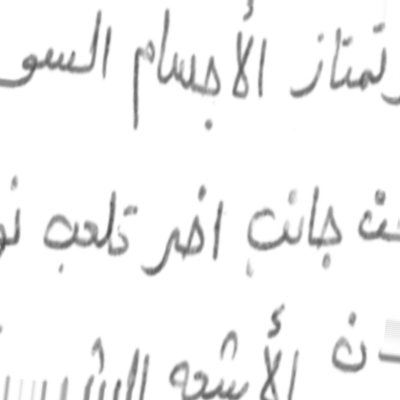 وتمتاز الأجسام السو
جانب اخر تلعب
الأشعه الشمس